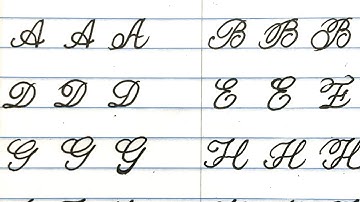 A A A B B B
D D D E E F
G G G H H H